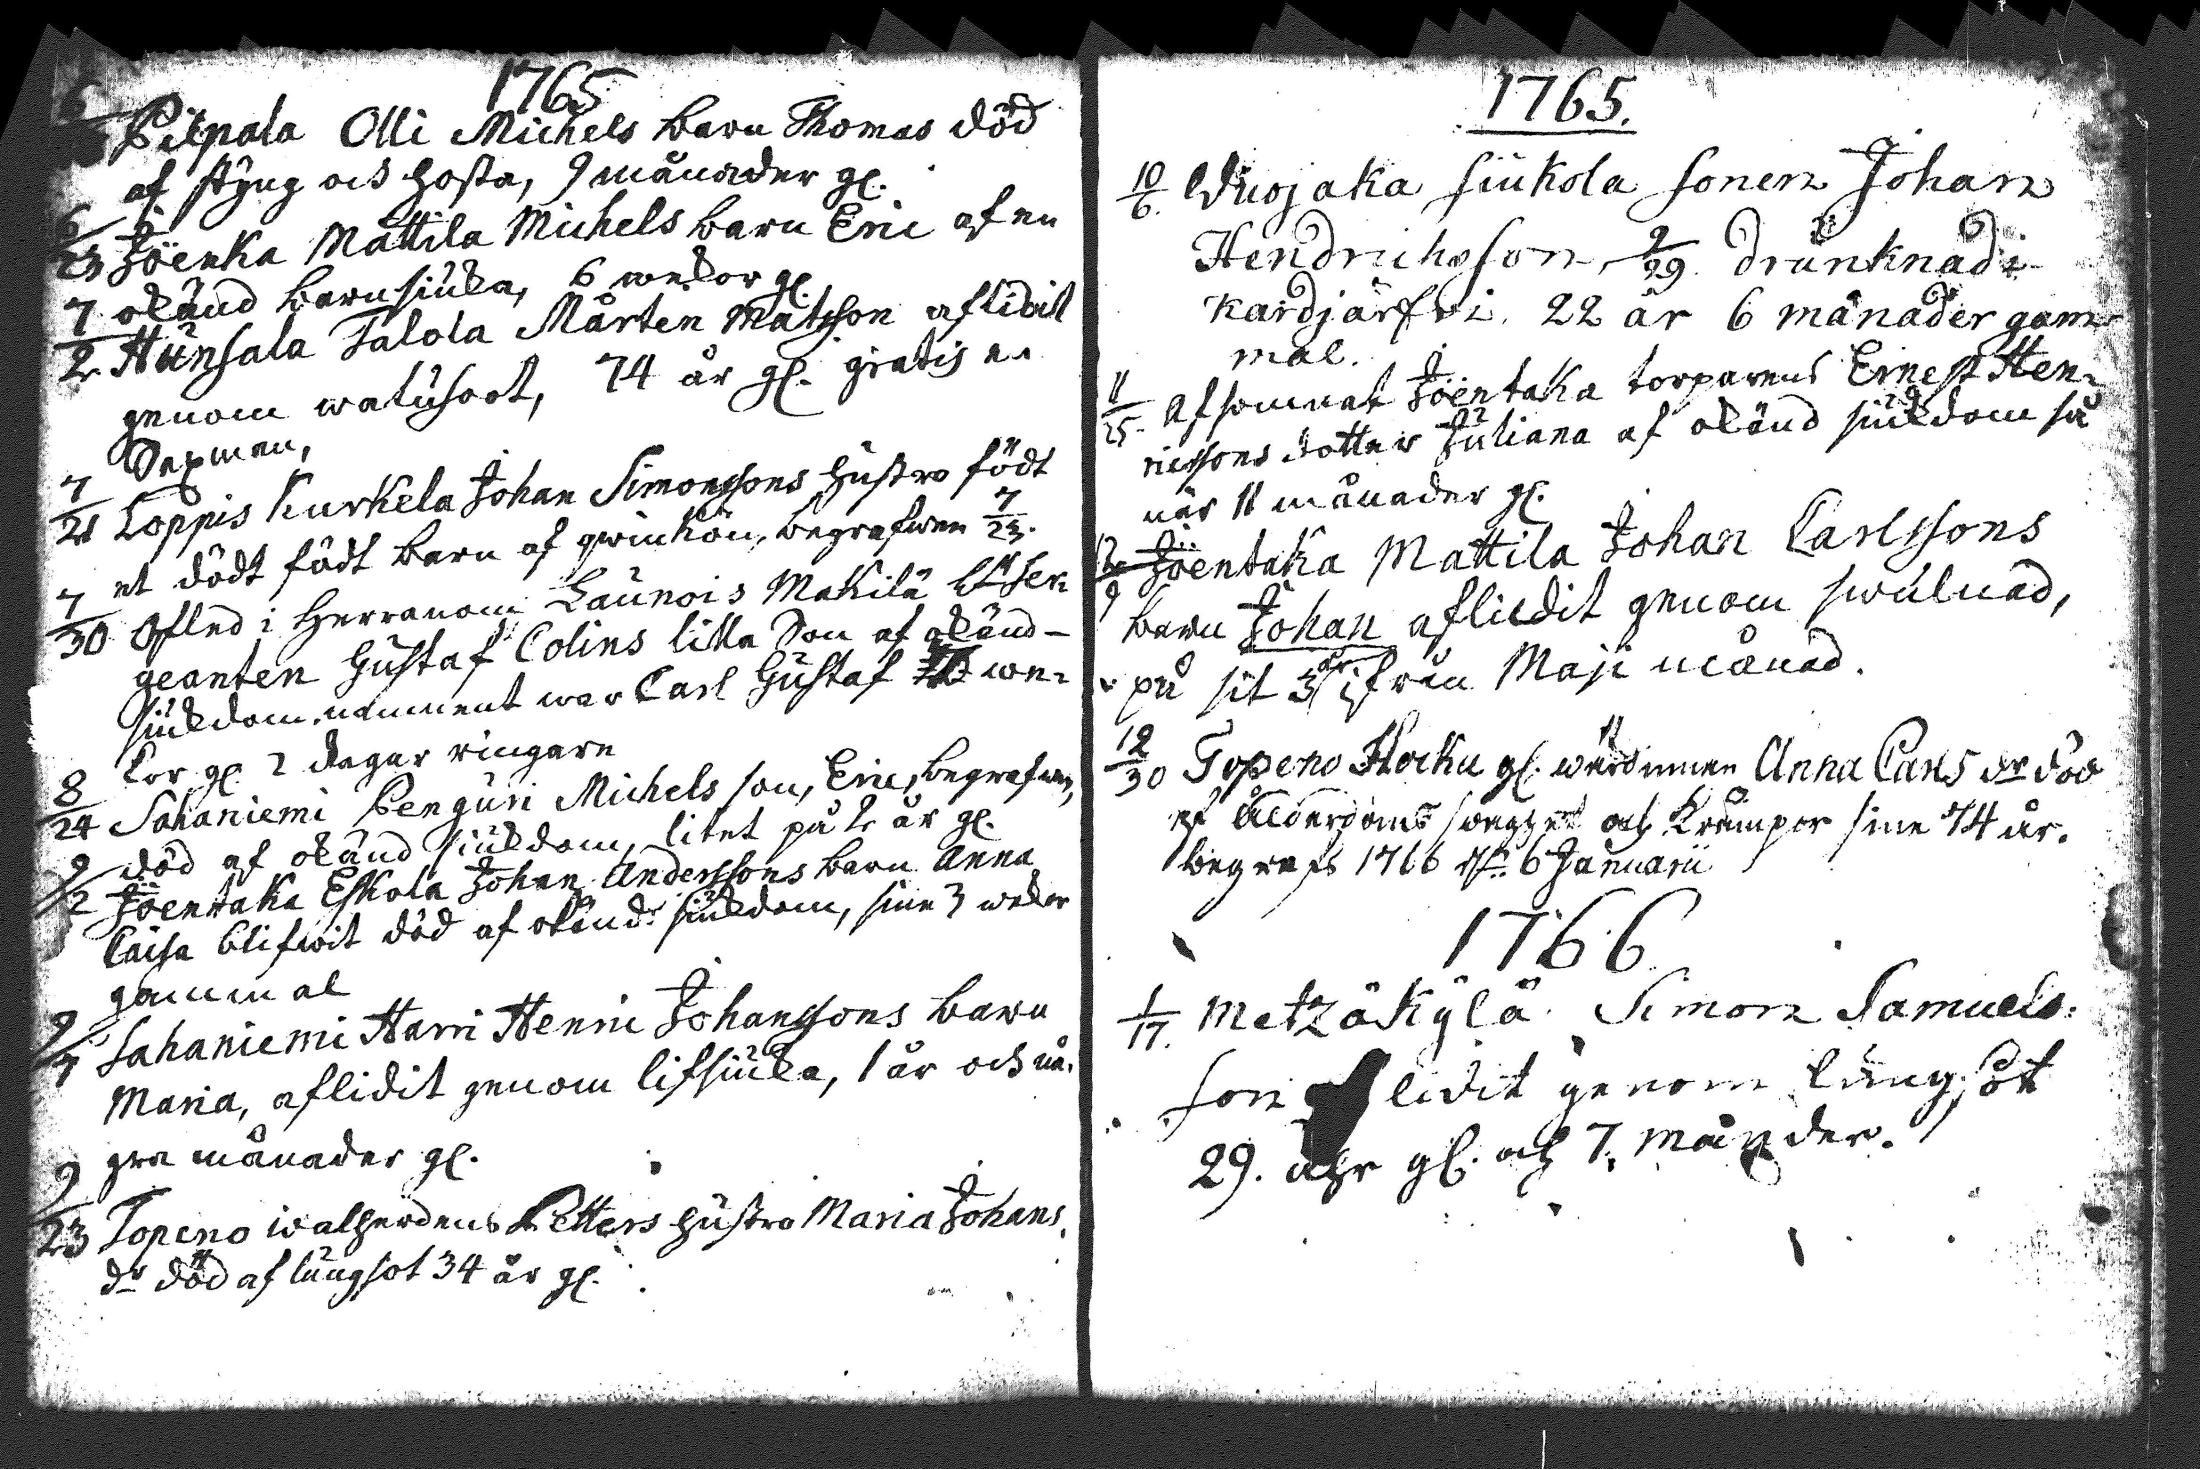 1765
Pilpala Olli Michels barn Thomas död
af styng och hosta, 9 månader gl.
6/23 Jöenka Mattila Michels barn Eric af en
okänd barnsiuka, 6 wekor gl.
7/2 Hünsala Talola Mårten Matsson aflidit
genom watusoot, 74 år gl. gratis en
Sexman,
7/21 Loppis Kurkela Johan Simonssons hustro födt
et dödt födt barn af qwinkön, begrafwen 7/23.
7/30 Afled i Herranom Launois Mäkilä
geanten Gustaf Colins lilla Son af okänd
siukdom. namnent war Carl Gustaf we-
kor gl. 2 dagar ringare
8/24 Sahaniemi Penguri Michels son, Eric, begrafwen,
död af okänd siukdom, litet på 2 år gl.
9/2 Jöentaka Eskola Johan Anderssons barn Anna
Caisa blifwit död af okänd siukdom, sine 3 wekor
gammal
9/7 Sahaniemi Harri Henric Johanssons barn
Maria, aflidit genom lifsiuka, 1 år och nå-
gra månader gl.
9/23 Topeno walherdens Petters hustro Maria Johans
dr död af lungsot 34 år gl.
1765.
10/6. Wuojaka siukola sonen Johan
Hendrichsson, 9/29. drunknad i
kardjärfwi. 22 år 6 månader gam-
mal.
11/25. Afsomnat Jöentaka torparens Ernest Hen-
ricssons dotter Juliana af okänd siukdom så
när 11 månader gl.
12/9 Jöentaka Mattila Johan Carlssons
barn Johan aflidit genom swulnad,
på sit 3 år ifrån Maji månad.
12/30 Topeno Hocku gl. wärdinnan Anna Cars dr död
af Ålderdoms och Krämpor sine 74 år.
begrafs 1766 d. 6 Januarii
1766
1/17. Metzäkylä Simon Samuels
son lidit genom lungsot
29. åhr gl. och 7. månader.